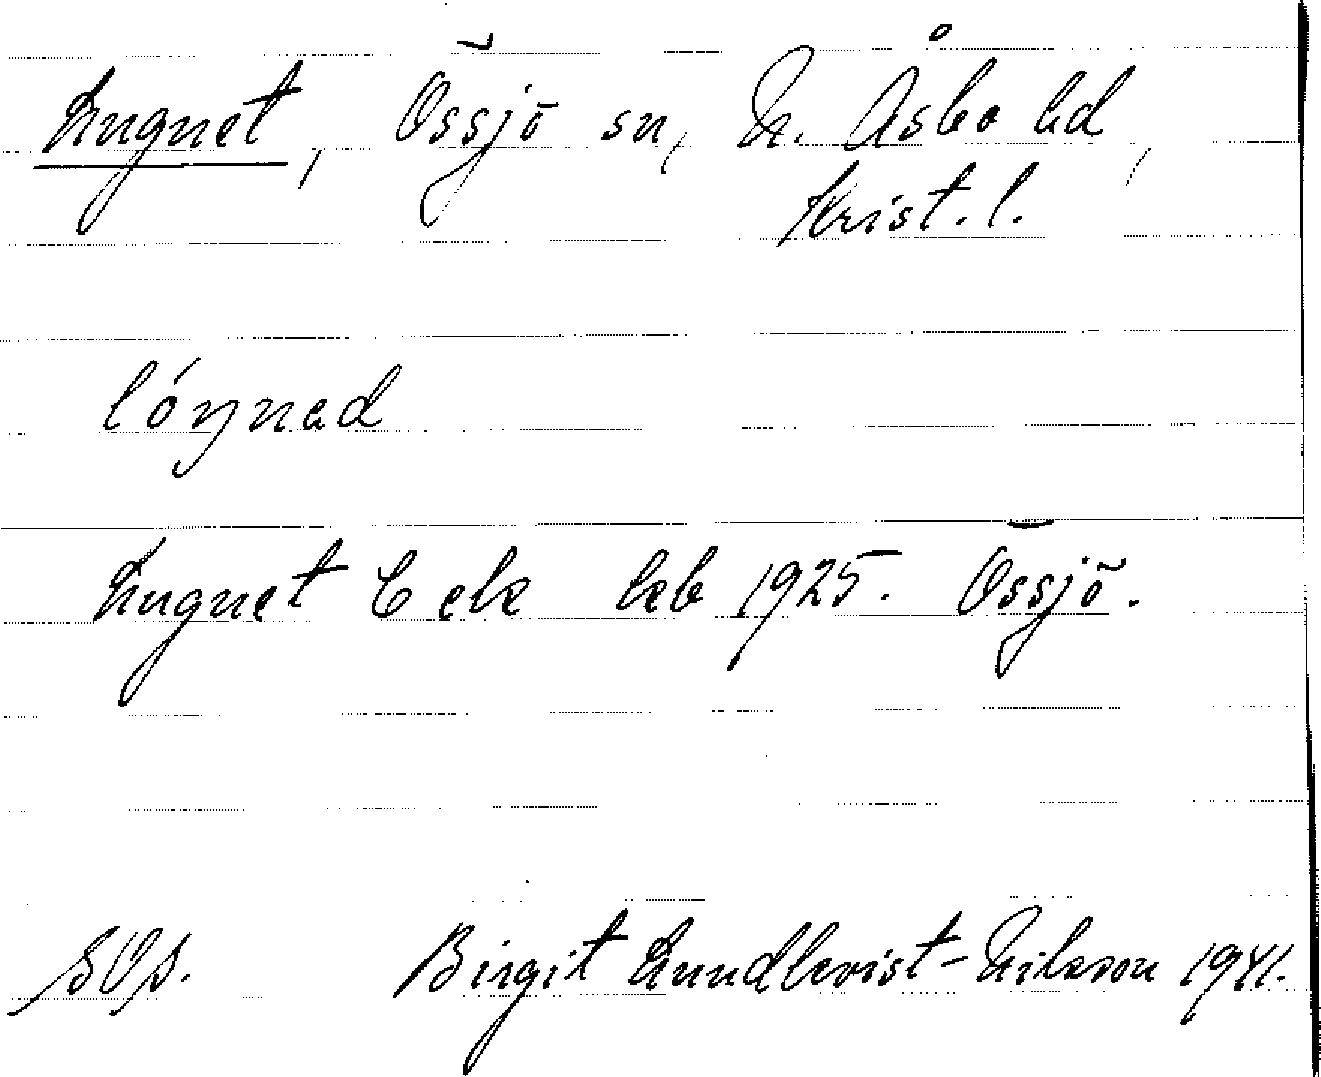 Lugnet, Össjö sn, N. Åsbo hd,
Krist. l.
lóŋnad
Lugnet C ek kb 1925. Össjö.
SOS. Birgit Lundkvist-Nilsson 1941.